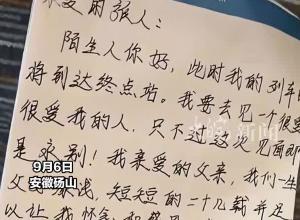 亲爱的旅人：
陌生人你好，此时我的列车即
将到达终点站。我要去见一个很
很爱我的人，只不过这次见面即
是永别！我亲爱的父亲，我们一生
父母缘浅，短短的二十几载并足
以让我怀念
9月6日
安徽砀山